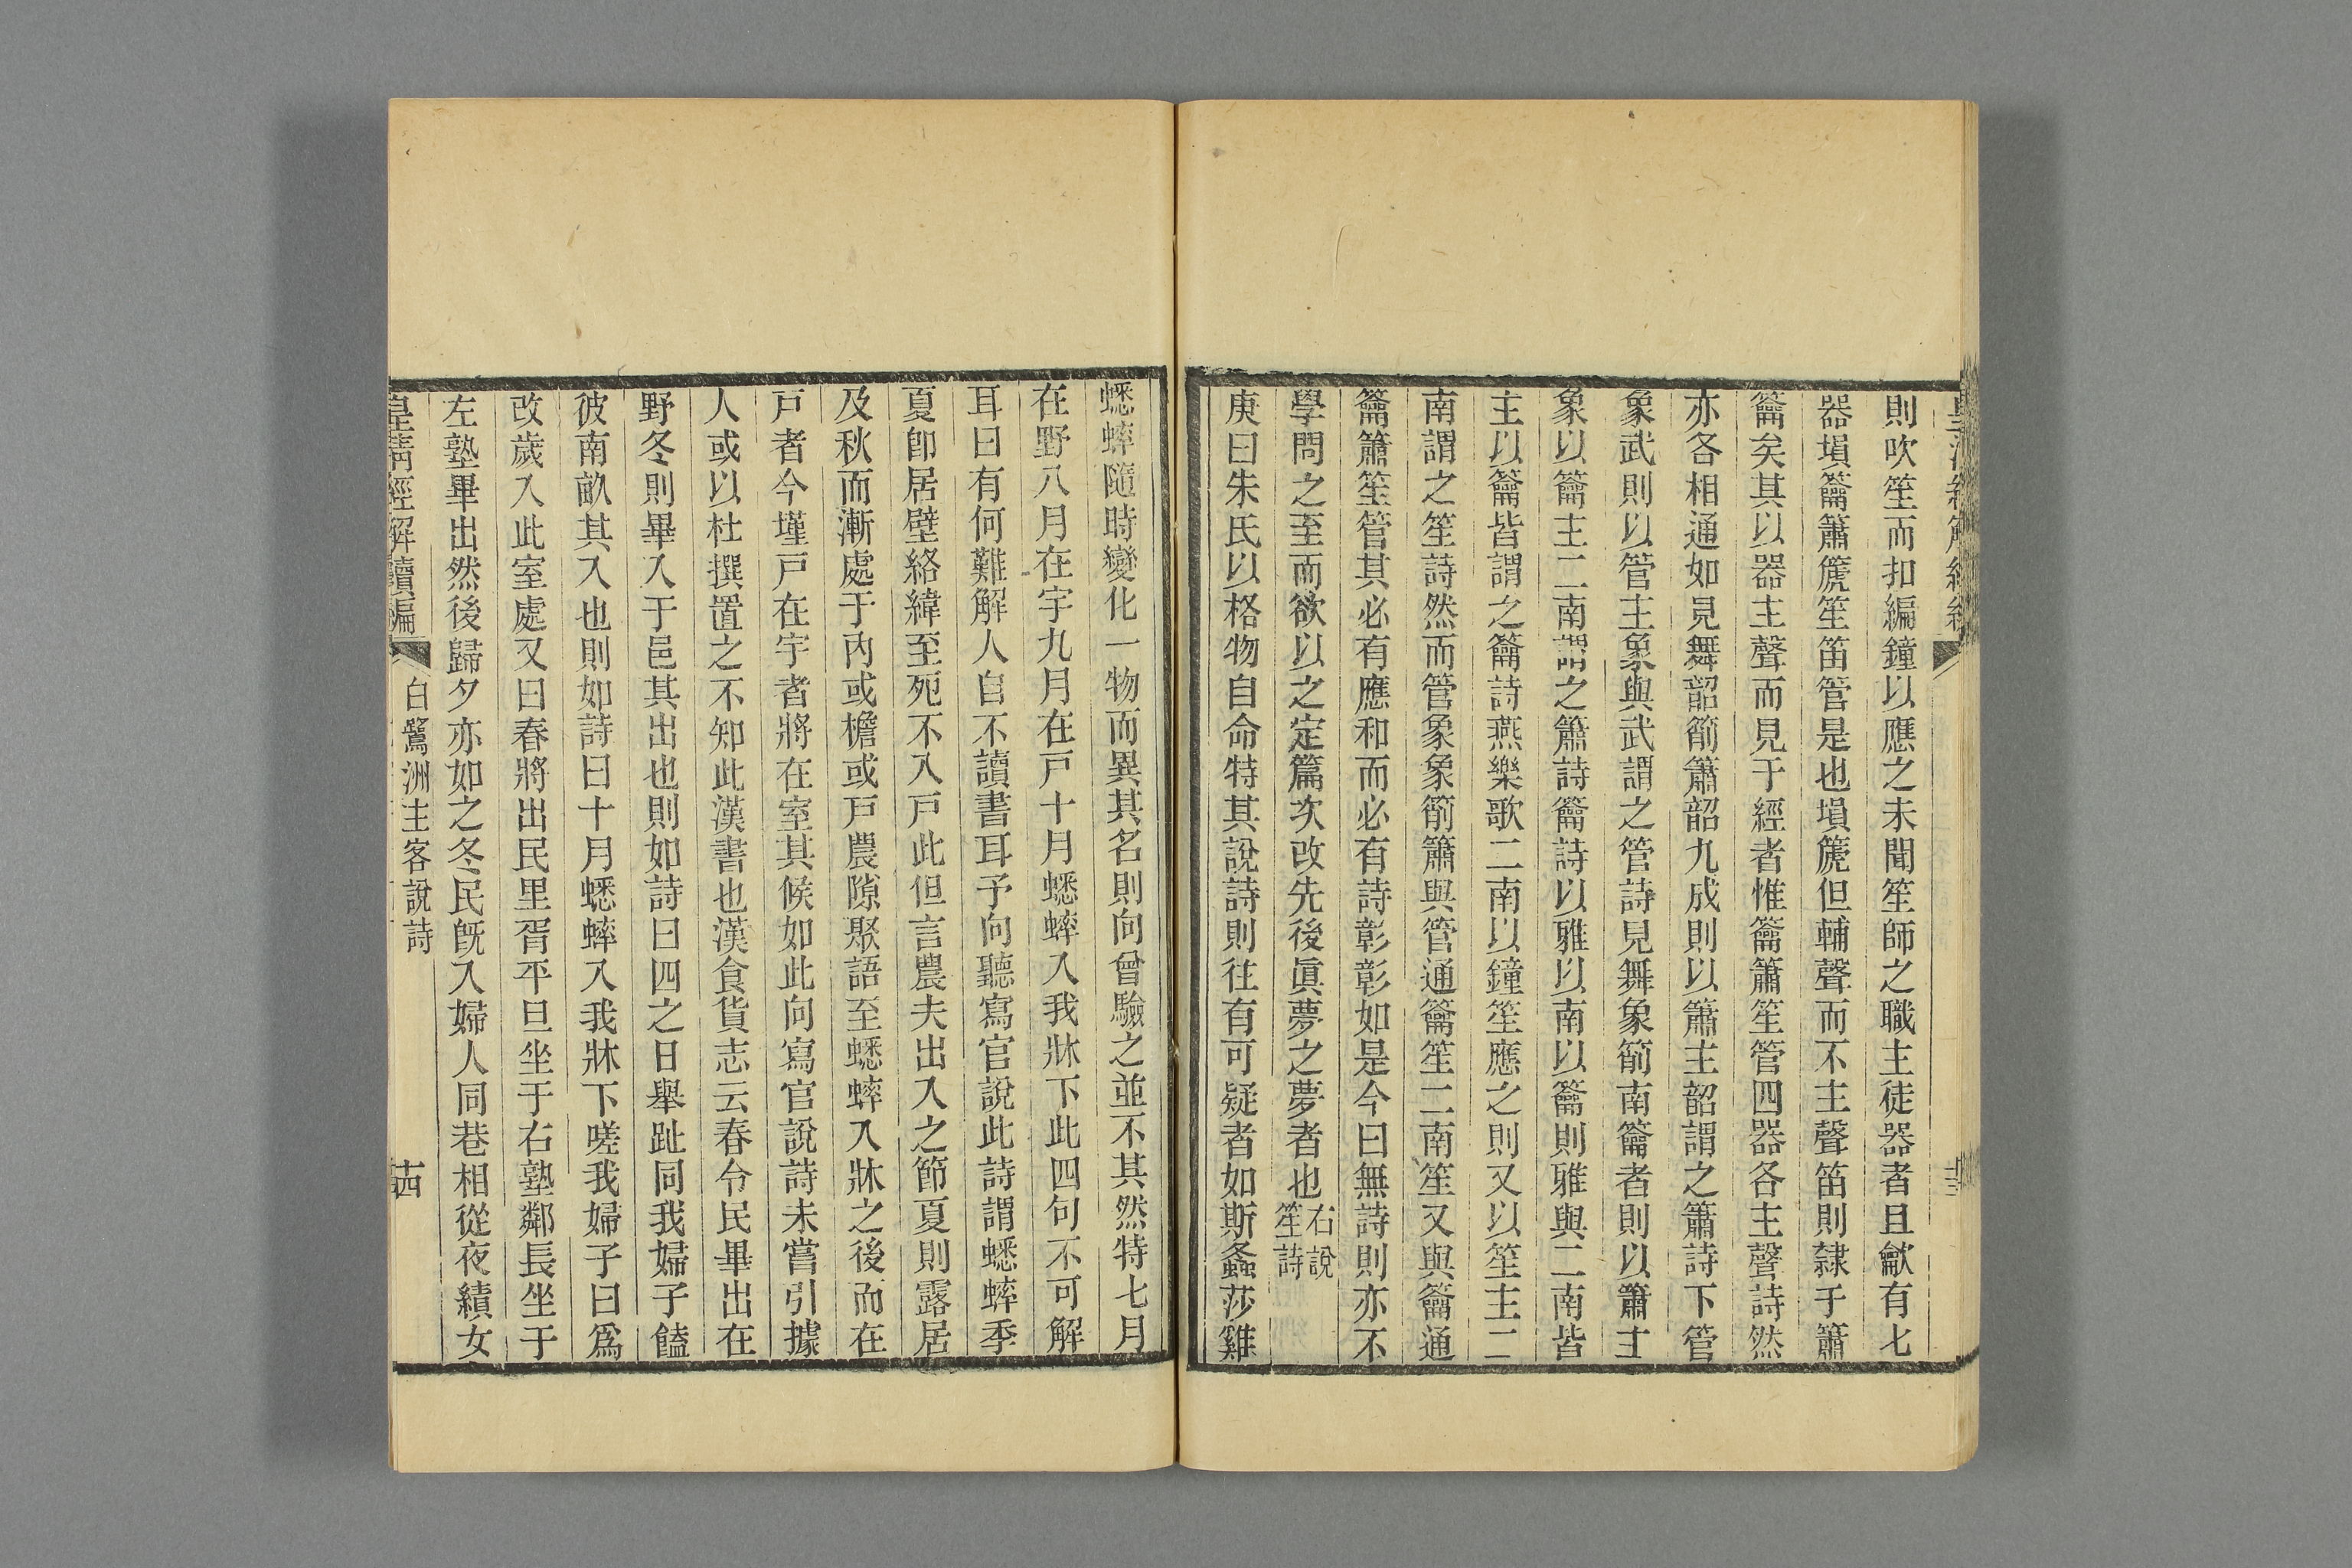 則吹笙而扣編鐘以應之未聞笙師之職主徒器者且龡有七
器塤籥簫篪笙笛管是也塤篪但輔聲而不主聲笛則隸于簫
籥矣其以器主聲而見于經者惟籥簫笙管四器各主聲詩然
亦各相通如見舞韶箾簫韶九成則以簫主韶謂之簫詩下管
象武則以管主象與武謂之管詩見舞象箾南籥者則以簫主
象以籥主二南謂之簫詩籥詩以雅以南以籥則雅與二南皆
主以籥皆謂之籥詩燕樂歌二南以鐘笙應之則又以笙主二
南謂之笙詩然而管象象箾簫與管通籥笙二南笙又與籥通
籥簫笙管其必有應和而必有詩彰彰如是今曰無詩則亦不
學問之至而欲以之定篇次改先後眞夢之夢者也右說笙詩
庚曰朱氏以格物自命特其說詩則往有可疑者如斯螽莎雞
蟋蟀隨時變化一物而異其名則向曾驗之並不其然特七月
在野八月在宇九月在戸十月蟋蟀入我牀下此四句不可解
耳曰有何難解人自不讀書耳予向聽寫官說此詩謂蟋蟀季
夏卽居壁絡緯至死不入戸此但言農夫出入之節夏則露居
及秋而漸處于內或檐或戸農隙聚語至蟋蟀入牀之後而在
戸者今墐戸在宇者將在室其候如此向寫官說詩未嘗引據
人或以杜撰置之不知此漢書也漢食貨志云春令民畢出在
野冬則畢入于邑其出也則如詩曰四之日舉趾同我婦子饁
彼南畝其入也則如詩曰十月蟋蟀入我牀下嗟我婦子曰爲
改歲入此室處又曰春將出民里胥平旦坐于右塾鄰長坐于
左塾畢出然後歸夕亦如之冬民旣入婦人同巷相從夜績女
皇清經解續編
白鷺洲主客說詩
十四